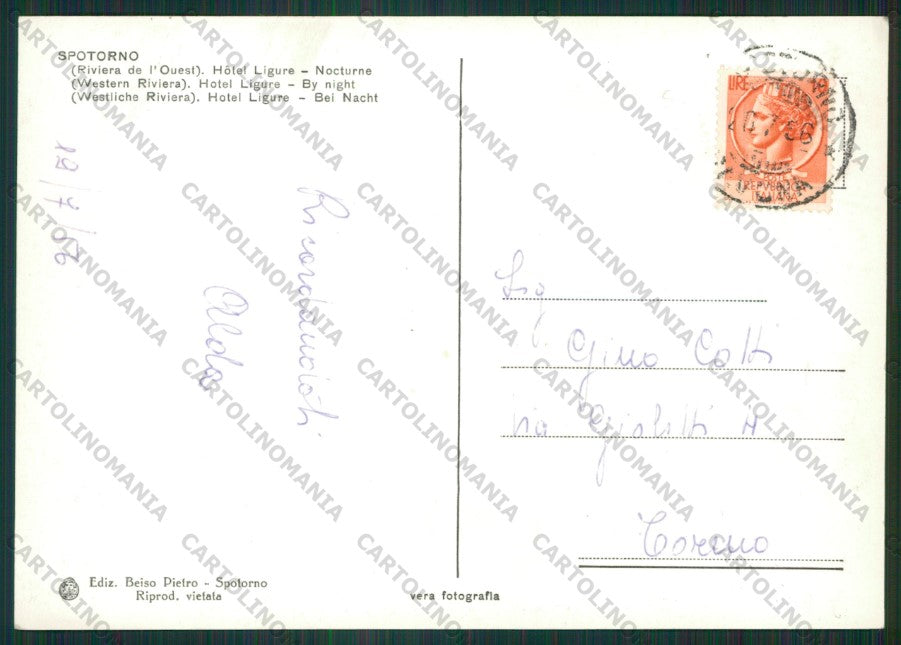 SPOTORNO
(Riviera de l'Ouest). Hôtel Ligure - Nocturne
(Western Riviera). Hotel Ligure - By night
(Westliche Riviera). Hotel Ligure - Bei Nacht
19/7/56
Ricordandoti
Aldo
LIRE
20.7.56
POSTE
REPUBBLICA
ITALIANA
Sig
Gino Cotti
via Giolitti
Torino
Ediz. Beiso Pietro - Spotorno
Riprod. vietata
vera fotografia
CARTOLINOMANIA